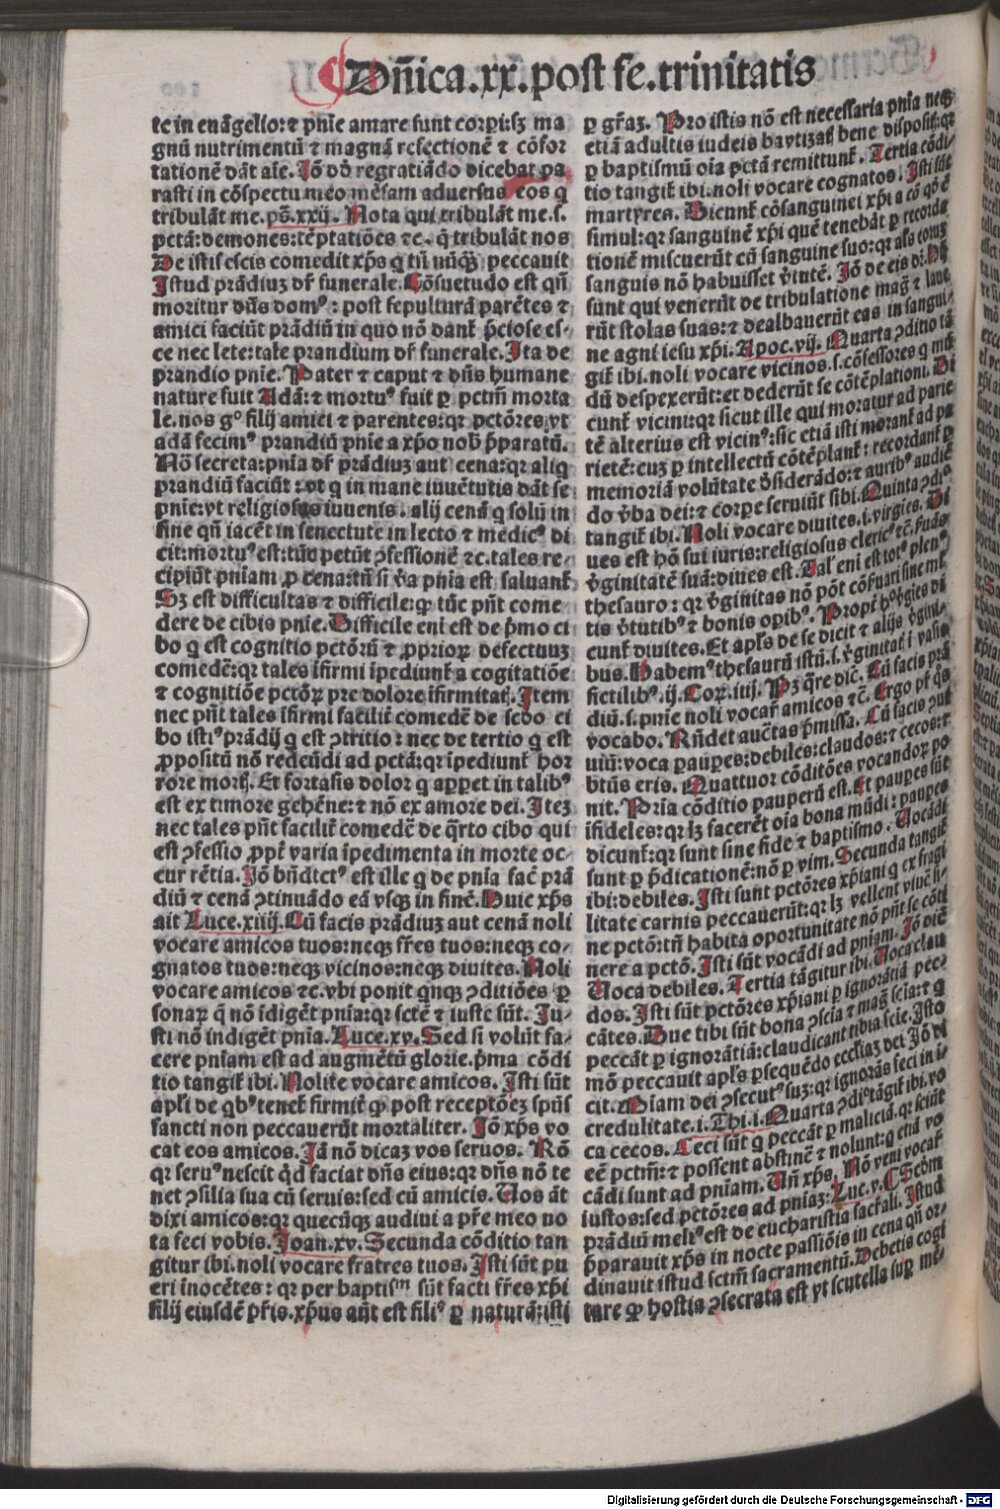 Dñica.xx.post fe.trinitatis
te in euãgelio:⁊ pñie amare sunt corpi:sꝫ ma
gnũ nutrimentũ ⁊ magnã refectionẽ ⁊ cõfor
tationẽ dãt aĩe. Jõ dd̄ regratiãdo dicebat pa
rasti in cõspectu meo mẽsam aduersus eos q̃
tribulãt me.ps̃.xxij. Nota qui tribulãt me.s.
pctã:demones:tẽptatiões ⁊c. q̃ tribulãt nos
De istis escis comedit xp̃s q̃ tñ nũq̃ꝫ peccauit
Jstud prãdiuꝫ dr̃ funerale. Cõsuetudo est qñ
moritur dñs domꝰ: post sepulturã parẽtes ⁊
amici faciũt prãdiũ in quo nõ dant̃ p̃ciose es-
ce nec lete:tale prandium dr̃ funerale. Jta de
prandio pnĩe. Pater ⁊ caput ⁊ dñs humane
nature fuit Adã: ⁊ mortuꝰ fuit ꝑ pctm̃ morta
le.nos gͦ filij amici ⁊ parentes:qr pctõres,vt
adã fecimꝰ prandiũ pnĩe a xp̃o nob̃ p̃paratũ.
Nõ secreta:pnĩa dr̃ prãdiuꝫ aut cena:qr aliq̃
prandiũ faciũt: vt q̃ in mane iuuẽtutis dãt se
pnĩe:vt religiosus iuuenis. alij cenã q̃ solũ in
fine qñ iacẽt in senectute in lecto ⁊ medicꝰ di
cit:mortuꝰ est:tũc petũt ꝯfessionẽ ⁊c.tales re-
cipiũt pnĩam ꝓ cena:tñ si v̓a pnĩa est saluant̃
Sꝫ est difficultas ⁊ difficile:qꝫ tũc pñt come
dere de cibis pnĩe. Difficile enĩ est de p̃mo ci
bo q̃ est cognitio pctõrũ ⁊ ꝓprioꝝ defectuuꝫ
comedẽ:qr tales ĩfirmi ĩpediunt̃ a cogitatiõe
⁊ cognitiõe pctõꝝ pre dolore ĩfirmitat̃. Jtem
nec pñt tales ĩfirmi facilit̃ comedẽ de scḋo ci
bo istiꝰ prãdij q̃ est ꝯtritio: nec de tertio q̃ est
ꝓpositũ nõ redeũdi ad pctã:qr ĩpediunt̃ hor
rore mort̃. Et fortasis dolor q̃ apꝑet in talibꝰ
est ex timore gehẽne:⁊ nõ ex amore dei. Jteꝫ
nec tales pñt facilit̃ comedẽ de q̃rto cibo qui
est ꝯfessio ꝓpt̃ varia ĩpedimenta in morte oc-
cur rẽtia. Jõ bñdictꝰ est ille q̃ de pnĩa fac̃ prã
diũ ⁊ cenã ꝯtinuãdo eã vsq̃ꝫ in finẽ. Huic xp̃s
ait Luce.xiiij. Cũ facis prãdiuꝫ aut cenã noli
vocare amicos tuos:neqꝫ fr̃es tuos:neqꝫ co-
gnatos tuos:neqꝫ vicinos:neqꝫ diuites. Noli
vocare amicos ⁊c.vbi ponit q̃nqꝫ ꝯditiões ꝑ
sonaꝝ q̃ nõ ĩdigẽt pnĩa:qr sctẽ ⁊ iuste sũt. Ju-
sti nõ indigẽt pnĩa. Luce.xv. Sed si volũt fa-
cere pnĩam est ad augmẽtũ glorie.p̃ma cõdi
tio tangit̃ ibi. Nolite vocare amicos. Jsti sũt
apl̃i de q̃bꝰ tenet̃ firmit̃ qꝫ post receptõeꝫ sp̃us
sancti non peccauerũt mortaliter. Jõ xp̃s vo
cat eos amicos. Jã nõ dicaꝫ vos seruos. Rõ
qr seruꝰ nescit q̃d faciat dñs eius:qr dñs nõ te
net ꝯsilia sua cũ seruis:sed cũ amicis. Uos ãt
dixi amicos:qr quecũqꝫ audiui a pr̃e meo no
ta feci vobis. Joan.xv. Secunda cõditio tan
gitur ibi.noli vocare fratres tuos. Jsti sũt pu
eri inocẽtes: qr per baptism̃ sũt facti fr̃es xp̃i
filij eiusdẽ pr̃is.xp̃us aũt est filiꝰ ꝑ naturã:isti
ꝑ gr̃aꝫ. Pro istis nõ est necessaria pnĩa neqꝫ
etiã adultis iudeis baptizat̃ bene disposit̃:qr
ꝑ baptismũ oĩa pctã remittunt̃. Tertia cõdi-
tio tangit̃ ibi.noli vocare cognatos. Jsti sũt
martyres. Dicunt̃ cõsanguinei xp̃i a cõ qd̃ ẽ
simul:qr sanguinẽ xp̃i quẽ tenebãt ꝑ recorda
tionẽ miscuerũt cũ sanguine suo:qr al̃s eoruꝫ
sanguis nõ habuisset v̓tutẽ. Jõ de eis dr̃. Hi
sunt qui venerũt de tribulatione mag̃ ⁊ laue
rũt stolas suas:⁊ dealbauerũt eas in sangui-
ne agni iesu xp̃i. Apoc.vij. Quarta ꝯditio tã
git̃ ibi.noli vocare vicinos.s.cõfessores q̃ mũ
dũ despexerũt:et dederũt se cõtẽplationi. Di
cunt̃ vicini:qr sicut ille qui moratur ad parie
tẽ alterius est vicinꝰ:sic etiã isti morant̃ ad pa
rietẽ:cuꝫ ꝑ intellectũ cõtẽplant̃: recordant̃ ꝑ
memoriã volũtate ꝯsiderãdo:⁊ auribꝰ audiẽ
do v̓ba dei:⁊ corꝑe seruiũt sibi. Quinta ꝯdiꝰ
tangit̃ ibi. Noli vocare diuites.i.virgĩes. Di
ues est hõ sui iuris:religiosus clericꝰ ⁊c̃.
v̓ginitatẽ suã:diues est. Tal̃ enĩ est totꝰ plenꝰ
thesauro: qr v̓ginitas nõ põt cõseruari sine ml̃
tis v̓tutibꝰ ⁊ bonis oꝑibꝰ. Propt̃ hͦ v̓gĩes di
cunt̃ diuites. Et apl̃s de se dicit ⁊ alijs v̓gini-
bus. Habemꝰ thesaurũ istũ.s.v̓ginitat̃ ĩ vasis
fictilibꝰ.ij. Coꝝ.iiij. Pꝫ q̃re dic̃. Cũ facis prã
diũ.s.pnĩe noli vocar̃ amicos ⁊c̃. Ergo pr̃ q̃s
vocabo. Rñdet auctas p̃missa. Cũ facis ꝯui
uiũ:voca pauꝑes:debiles:claudos:⁊ cecos:⁊
btũs eris. Quattuor cõditões vocandoꝝ po
nit. Prĩa cõditio pauperũ est. Et pauꝑes sũt
ĩfideles:qr lꝫ facerẽt oĩa bona mũdi: pauꝑes
dicunt̃:qr sunt sine fide ⁊ baptismo. Uocãdi
sunt ꝑ p̃dicationẽ:nõ ꝑ vim. Secunda tangit̃
ibi:debiles. Jsti sunt pctõres xp̃iani q̃ ex fragi
litate carnis peccauerũt:qr lꝫ vellent viuẽ si-
ne pctõ:tñ habita oportunitate nõ pñt se cõti
nere a pctõ. Jsti sũt vocãdi ad pnĩam. Jõ dic̃
Uoca debiles. Tertia tãgitur ibi. Uoca clau
dos. Jsti sũt pctõres xp̃iani ꝑ ignorãtiã pec-
cãtes. Due tibi sũt bona ꝯscĩa ⁊ mag̃ scĩa:⁊ q̃
peccãt ꝑ ignorãtiã:claudicant tibia scĩe. Jsto
mõ peccauit apl̃s ꝑsequẽdo eccl̃iaꝫ dei Jõ di
cit. Miam dei ꝯsecutꝰ suꝫ:qr ignorãs feci in ĩ
credulitate.i. Thi.i. Quarta ꝯdiꝰ tãgit̃ ibi.vo
ca cecos. Ceci sũt q̃ peccãt ꝑ maliciã.qr sciũt
eẽ pctm̃:⁊ possent abstinẽ ⁊ nolunt:q̃ etiã vo
cãdi sunt ad pnĩam. Uñ xp̃s. Nõ veni vocar̃
iustos:sed pctõres ad pnĩaꝫ: Luc.v. ⸿ Scḋm
prãdiũ meliꝰ est de eucharistia sacr̃ali. Jstud
p̃parauit xp̃s in nocte passiõis in cena qñ or-
dinauit istud sctm̃ sacramentũ. Debetis cogi
tare qꝫ hostia ꝯsecrata est vt scutella suꝑ mẽ-
Digitalisierung gefördert durch die Deutsche Forschungsgemeinschaft - DFG